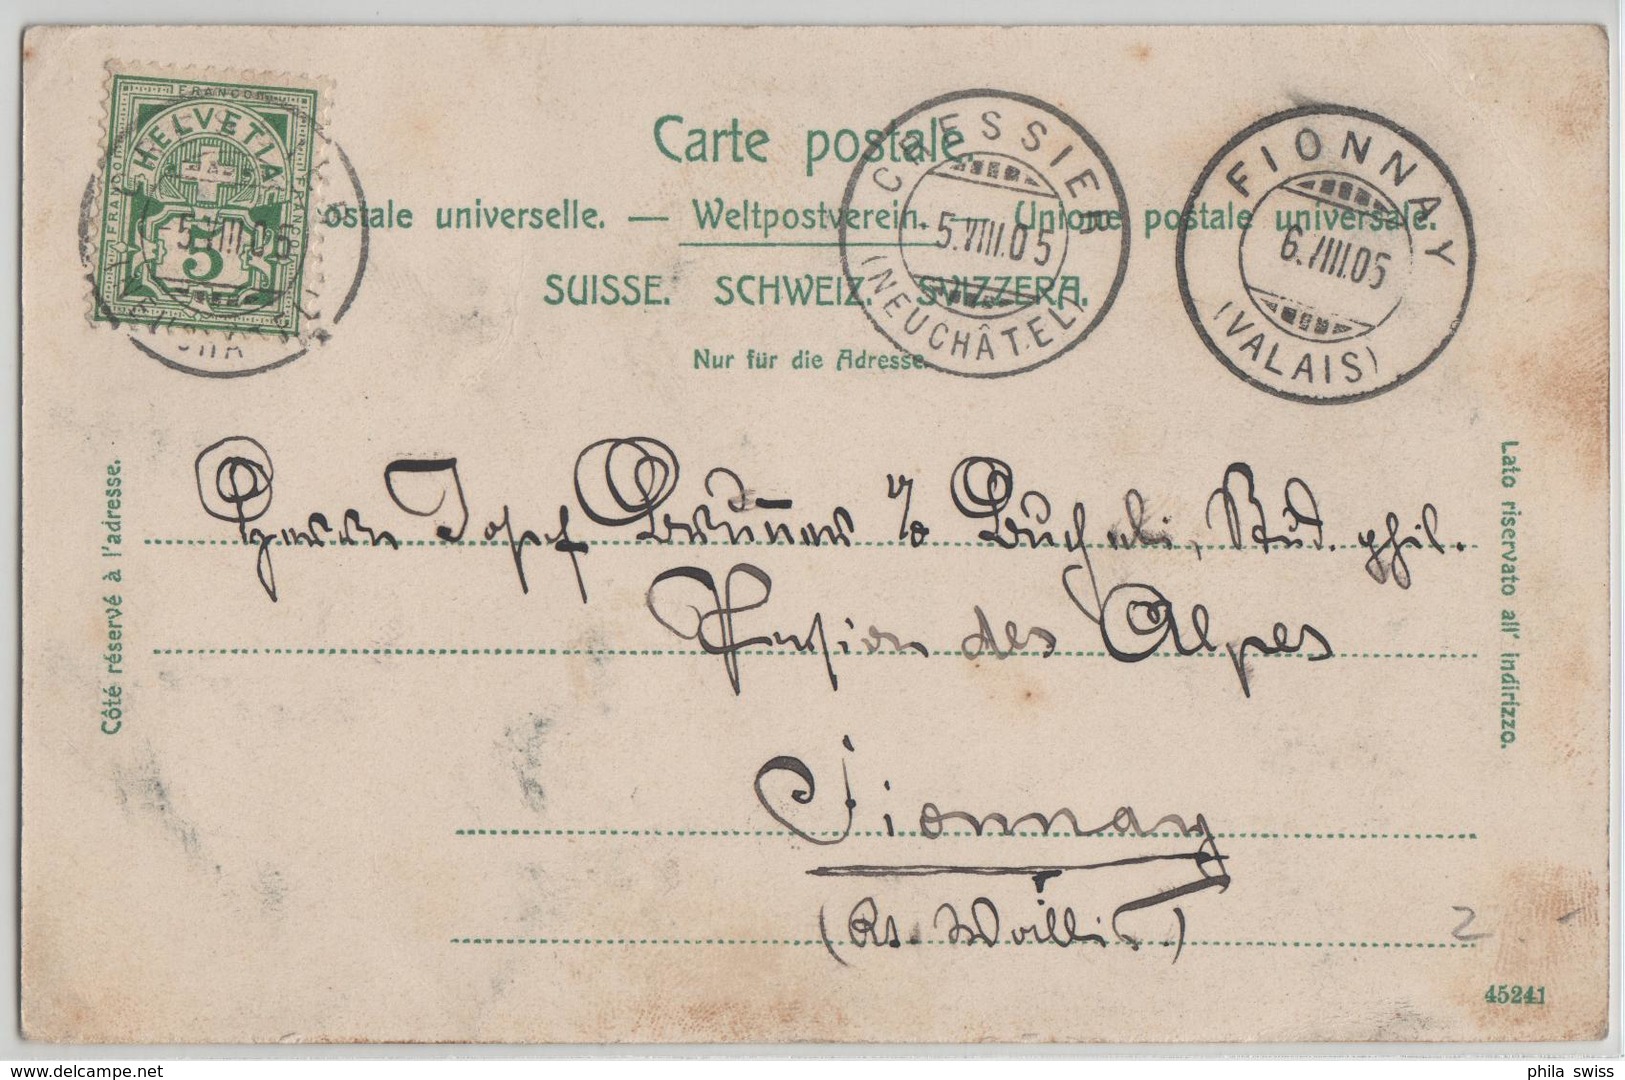 FRANCO
HELVETIA
FRANCO
FRANCO
5
5.VIII.05
Carte postale.
ostale universelle. — Weltpostverein. — Unione postale universale.
SUISSE. SCHWEIZ. SVIZZERA.
Nur für die Adresse.
CRESSIER
5.VIII.05
(NEUCHÂTEL)
FIONNAY
6.VIII.05
(VALAIS)
Côté réservé à l'adresse.
Lato riservato all' indirizzo.
Herrn Josef Brunner c/o Buchli, Stud. phil.
Pension des Alpes
Fionnay
(Kt. Wallis.)
2
45241
delcampe.net
phila swiss